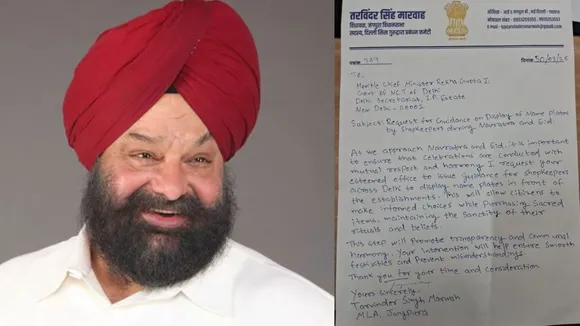 तरविंदर सिंह मारवाह
विधायक, जंगपुरा विधानसभा
सदस्य, दिल्ली सिख गुरुद्वारा प्रबंधन कमेटी
To,
Hon'ble Chief Minister Rekha Gupta Ji
Govt of NCT of Delhi
Delhi Secretariat, I.P. Estate
New Delhi - 110002
Subject: Request for Guidance on Display of Name Plates
by shopkeepers during Navratra and Eid.
As we approach Navratra and Eid, it is important
to ensure that celebrations are conducted with
mutual respect and harmony. I request your
esteemed office to issue guidance for shopkeepers
across Delhi to display name plates in front of
the establishments. This will allow citizens to
make informed choices while Purchasing Sacred
items, maintaining the Sanctity of their
rituals and beliefs.
This step will Promote transparency and communal
harmony. Your intervention will help ensure Smooth
festivities and Prevent misunderstandings.
Thank you for your time and consideration
Yours sincerely,
Tarvinder Singh Marwah
MLA, Jangpura